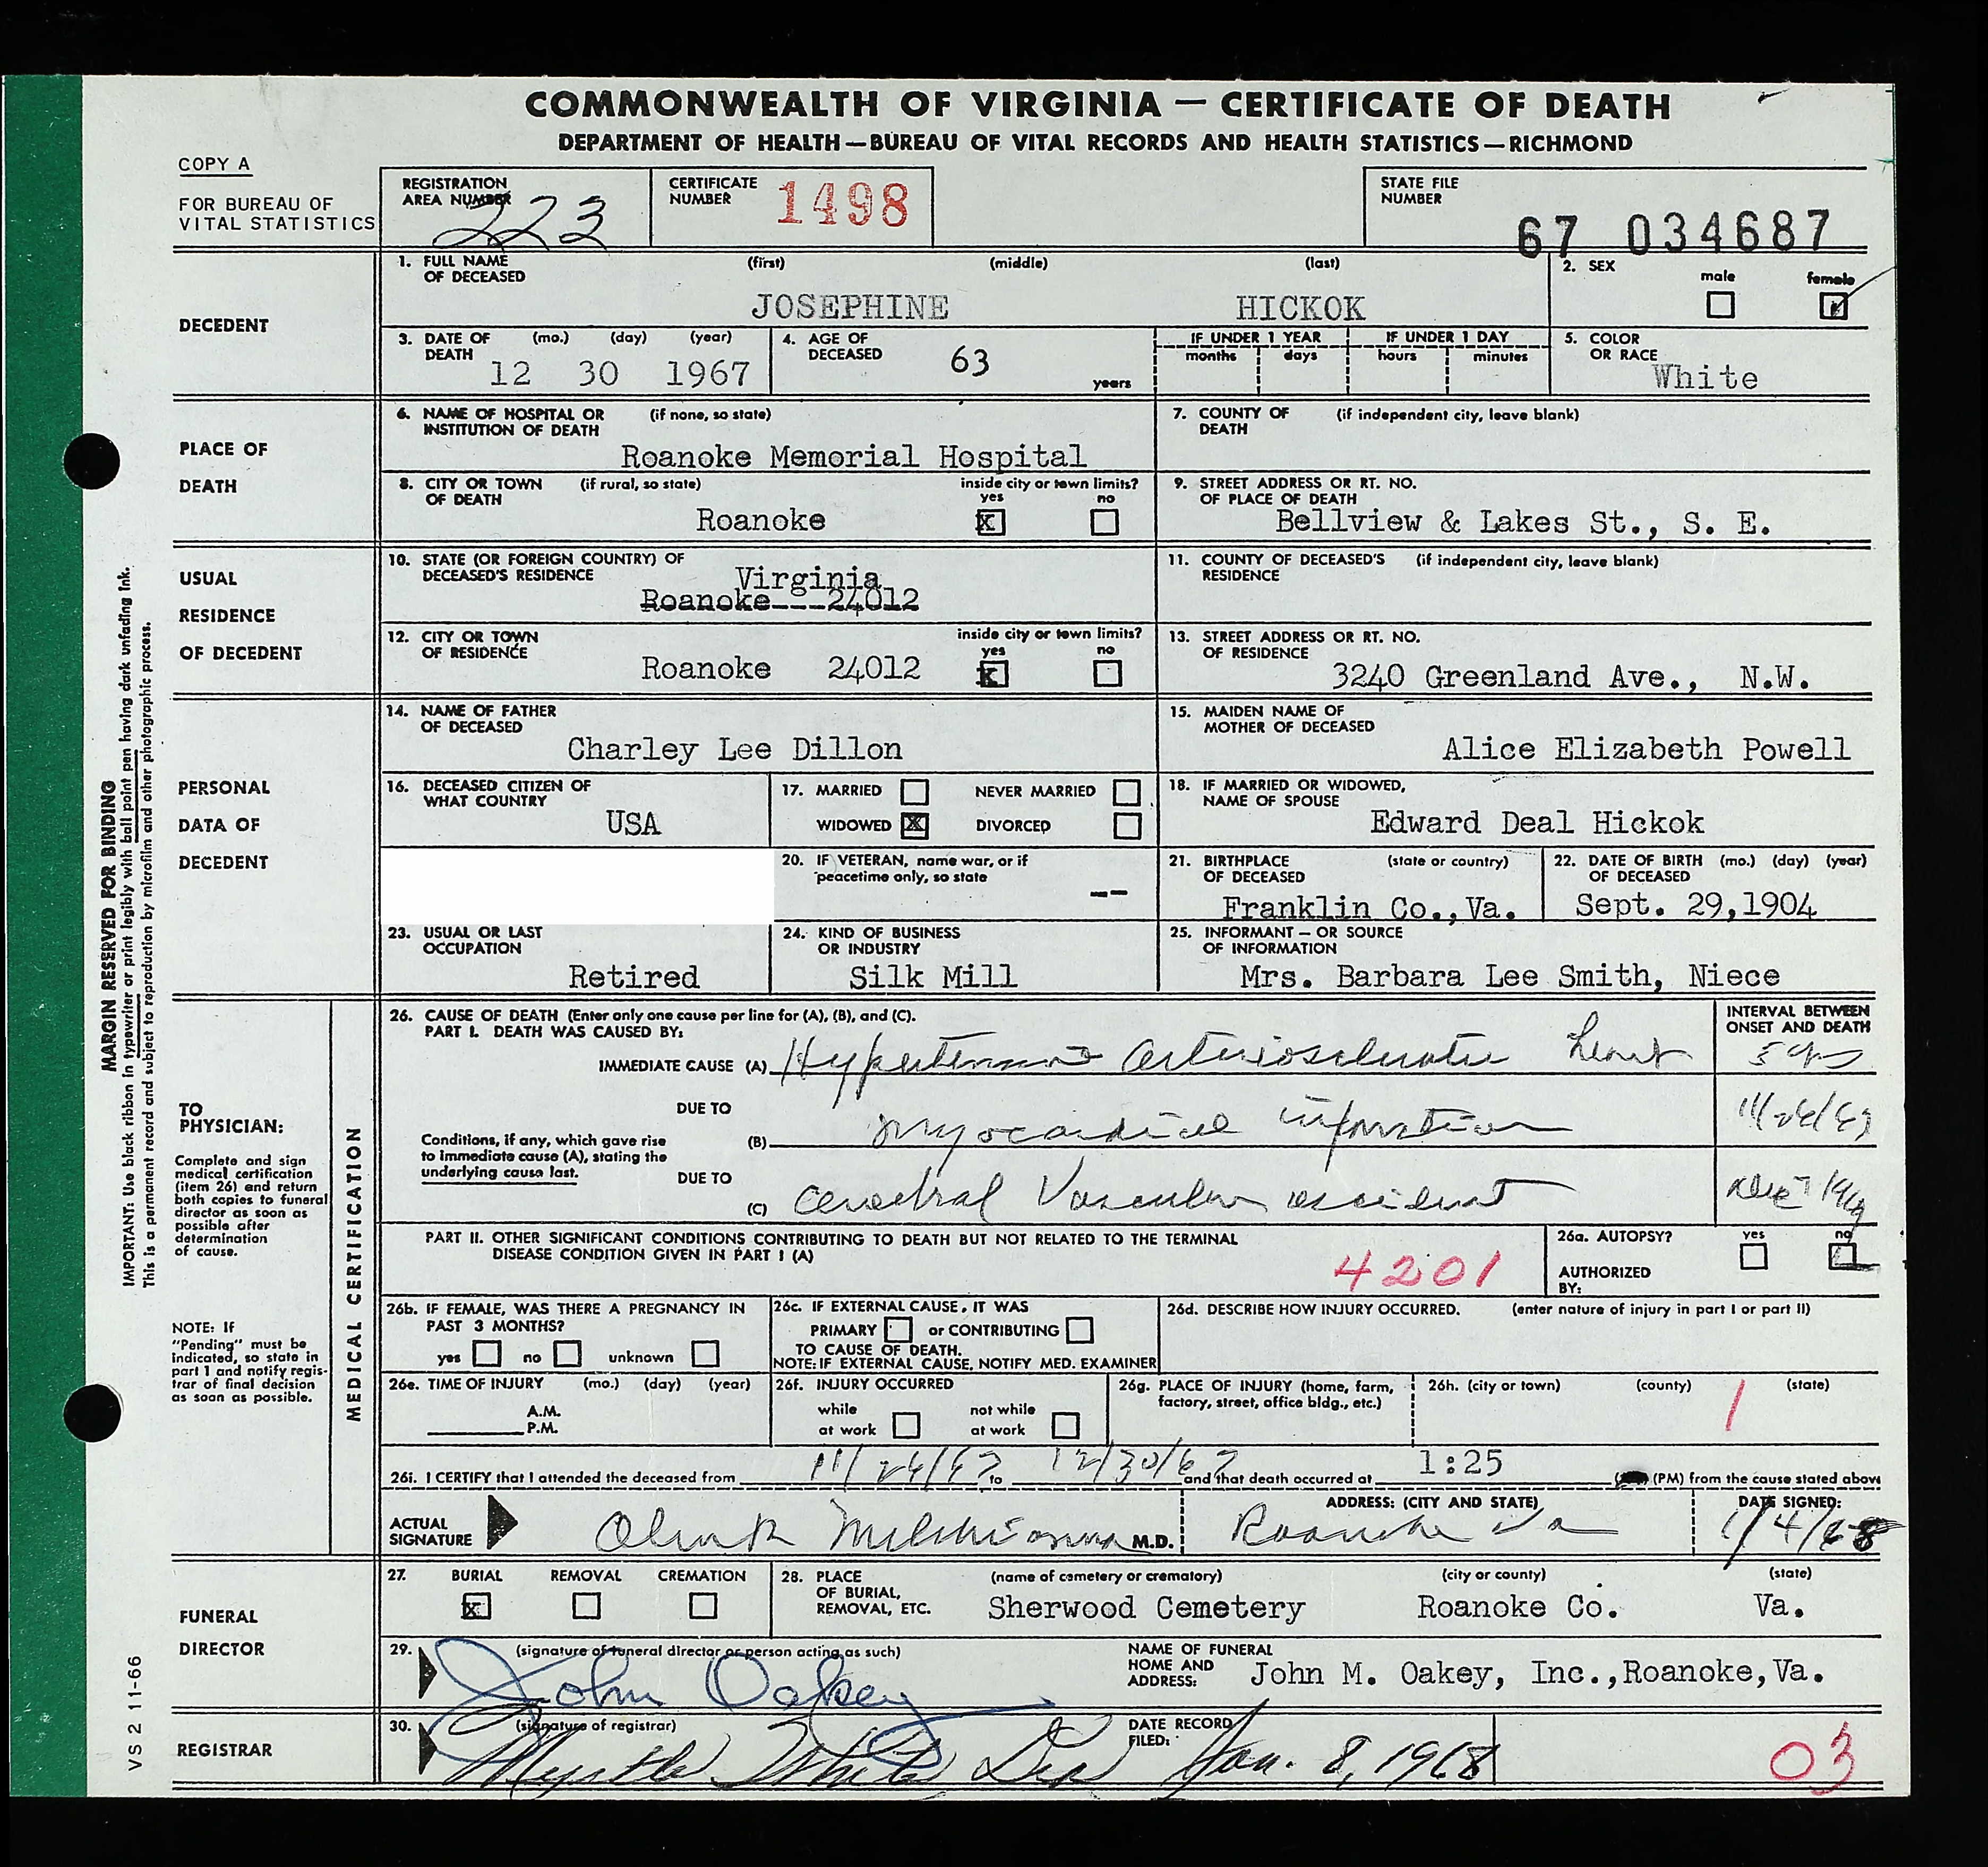 COMMONWEALTH OF VIRGINIA — CERTIFICATE OF DEATH
DEPARTMENT OF HEALTH—BUREAU OF VITAL RECORDS AND HEALTH STATISTICS—RICHMOND
COPY A
FOR BUREAU OF
VITAL STATISTICS
REGISTRATION
AREA NUMBER
223
CERTIFICATE
NUMBER
1498
STATE FILE
NUMBER
67 034687
DECEDENT
1. FULL NAME
OF DECEASED
(first) (middle) (last)
JOSEPHINE HICKOK
2. SEX
male female
3. DATE OF (mo.) (day) (year)
DEATH
12 30 1967
4. AGE OF
DECEASED
63
years
IF UNDER 1 YEAR
months days
IF UNDER 1 DAY
hours minutes
5. COLOR
OR RACE
White
PLACE OF
DEATH
6. NAME OF HOSPITAL OR (if none, so state)
INSTITUTION OF DEATH
Roanoke Memorial Hospital
7. COUNTY OF (if independent city, leave blank)
DEATH
8. CITY OR TOWN (if rural, so state)
OF DEATH
Roanoke
inside city or town limits?
yes no
X
9. STREET ADDRESS OR RT. NO.
OF PLACE OF DEATH
Bellview & Lakes St., S. E.
USUAL
RESIDENCE
OF DECEDENT
10. STATE (OR FOREIGN COUNTRY) OF
DECEASED'S RESIDENCE
Virginia
Roanoke---24012
11. COUNTY OF DECEASED'S (if independent city, leave blank)
RESIDENCE
12. CITY OR TOWN
OF RESIDENCE
Roanoke 24012
inside city or town limits?
yes no
X
13. STREET ADDRESS OR RT. NO.
OF RESIDENCE
3240 Greenland Ave., N.W.
PERSONAL
DATA OF
DECEDENT
14. NAME OF FATHER
OF DECEASED
Charley Lee Dillon
15. MAIDEN NAME OF
MOTHER OF DECEASED
Alice Elizabeth Powell
16. DECEASED CITIZEN OF
WHAT COUNTRY
USA
17. MARRIED NEVER MARRIED
WIDOWED X DIVORCED
18. IF MARRIED OR WIDOWED,
NAME OF SPOUSE
Edward Deal Hickok
20. IF VETERAN, name war, or if
peacetime only, so state
--
21. BIRTHPLACE (state or country)
OF DECEASED
Franklin Co.,Va.
22. DATE OF BIRTH (mo.) (day) (year)
OF DECEASED
Sept. 29,1904
23. USUAL OR LAST
OCCUPATION
Retired
24. KIND OF BUSINESS
OR INDUSTRY
Silk Mill
25. INFORMANT — OR SOURCE
OF INFORMATION
Mrs. Barbara Lee Smith, Niece
MARGIN RESERVED FOR BINDING
IMPORTANT: Use black ribbon in typewriter or print legibly with ball point pen having dark unfading ink.
This is a permanent record and subject to reproduction by microfilm and other photographic process.
TO
PHYSICIAN:
Complete and sign
medical certification
(item 26) and return
both copies to funeral
director as soon as
possible after
determination
of cause.
NOTE: If
"Pending" must be
indicated, so state in
part 1 and notify regis-
trar of final decision
as soon as possible.
MEDICAL CERTIFICATION
26. CAUSE OF DEATH (Enter only one cause per line for (A), (B), and (C).
PART I. DEATH WAS CAUSED BY:
INTERVAL BETWEEN
ONSET AND DEATH
IMMEDIATE CAUSE (A) Hypertensive arteriosclerotic heart
5 yrs
DUE TO
(B) myocardial infarction
11/24/67
Conditions, if any, which gave rise
to immediate cause (A), stating the
underlying cause last.
DUE TO
(C) cerebral vascular accident
PART II. OTHER SIGNIFICANT CONDITIONS CONTRIBUTING TO DEATH BUT NOT RELATED TO THE TERMINAL
DISEASE CONDITION GIVEN IN PART I (A)
4201
26a. AUTOPSY? yes no
AUTHORIZED
BY:
26b. IF FEMALE, WAS THERE A PREGNANCY IN
PAST 3 MONTHS?
yes no unknown
26c. IF EXTERNAL CAUSE, IT WAS
PRIMARY or CONTRIBUTING
TO CAUSE OF DEATH.
NOTE: IF EXTERNAL CAUSE, NOTIFY MED. EXAMINER
26d. DESCRIBE HOW INJURY OCCURRED. (enter nature of injury in part I or part II)
26e. TIME OF INJURY (mo.) (day) (year)
A.M.
P.M.
26f. INJURY OCCURRED
while not while
at work at work
26g. PLACE OF INJURY (home, farm,
factory, street, office bldg., etc.)
26h. (city or town) (county) (state)
1
26i. I CERTIFY that I attended the deceased from 11/24/67 to 12/30/67 and that death occurred at 1:25 (PM) from the cause stated above
ACTUAL
SIGNATURE
M.D.
ADDRESS: (CITY AND STATE)
Roanoke Va
DATE SIGNED:
1/4/68
FUNERAL
DIRECTOR
27. BURIAL REMOVAL CREMATION
X
28. PLACE
OF BURIAL,
REMOVAL, ETC.
(name of cemetery or crematory) (city or county) (state)
Sherwood Cemetery Roanoke Co. Va.
29. (signature of funeral director or person acting as such)
John Oakey
NAME OF FUNERAL
HOME AND
ADDRESS:
John M. Oakey, Inc.,Roanoke,Va.
REGISTRAR
30. (signature of registrar)
Myrtle White Dep
DATE RECORD
FILED:
Jan. 8, 1968
03
VS 2 11-66